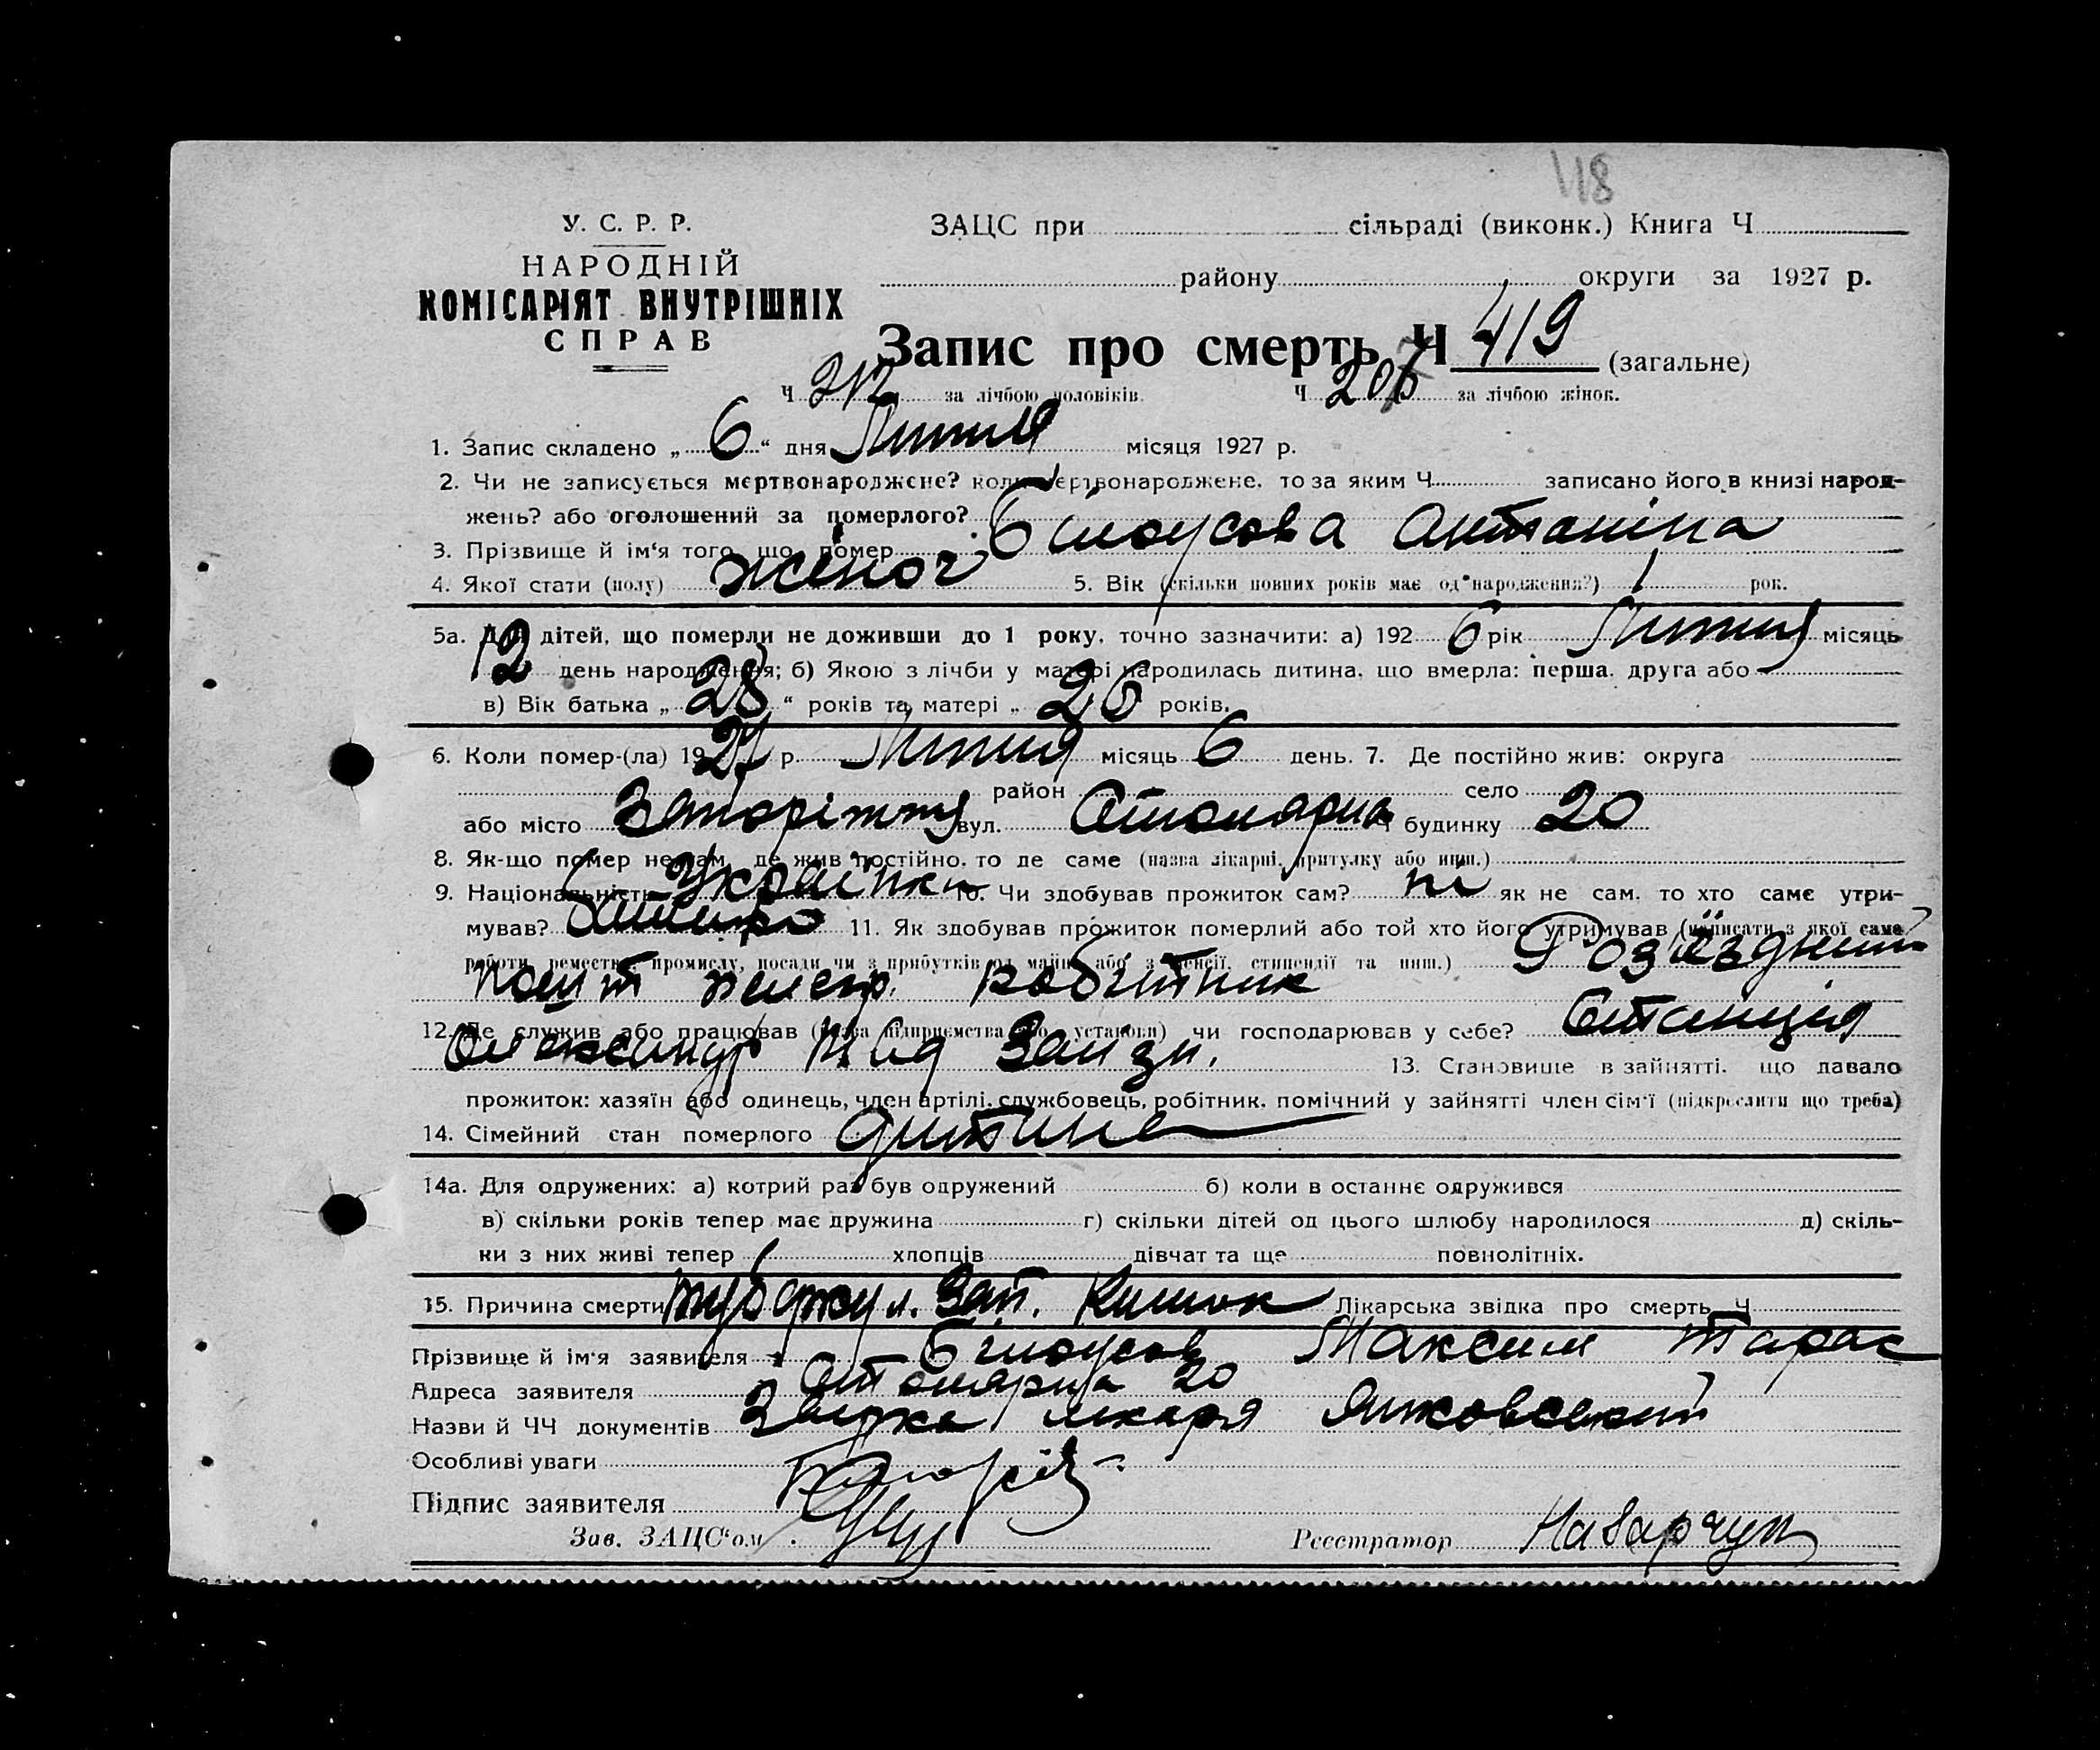 118
У. С. Р. Р.
НАРОДНІЙ
КОМІСАРІЯТ ВНУТРІШНІХ
СПРАВ
ЗАЦС при сільраді (виконк.) Книга Ч
району округи за 1927 р.
Запис про смерть Ч 419 (загальне)
Ч 212 за лічбою чоловіків. Ч 207 за лічбою жінок.
1. Запис складено „ 6 “ дня Липня місяця 1927 р.
2. Чи не записується мертвонароджене? коли мертвонароджене, то за яким Ч записано його в книзі народ-
жень? або оголошений за померлого?
3. Прізвище й ім‘я того, що помер Білоусова Антаніна
4. Якої стати (полу) жіноч 5. Вік (скільки повних років має од народження?) 1 рок.
5а. Для дітей, що померли не доживши до 1 року, точно зазначити: а) 192 6 рік Липня місяць
12 день народження; б) Якою з лічби у матері народилась дитина, що вмерла: перша, друга або
в) Вік батька „ 28 “ років та матері „ 26 років.
6. Коли помер-(ла) 19 27 р. Липня місяць 6 день. 7. Де постійно жив: округа
район село
або місто Запоріжжя вул. Столярна Ч будинку 20
8. Як-що помер не там, де жив постійно, то де саме (назва лікарні, притулку або инш.)
9. Національність Українка 10. Чи здобував прожиток сам? ні як не сам, то хто саме утри-
мував? батько 11. Як здобував прожиток померлий або той хто його утримував (написати з якої саме
роботи, ремества, промислу, посади чи з прибутків од майна або з пенсії, стипендії та инш.) Роз'їздний
пошт телегр. робітник
12. Де служив або працював (назва підприємства або установи) чи господарював у себе? Станція
Олександр
13. Становище в зайнятті, що давало
прожиток: хазяїн або одинець, член артілі, службовець, робітник, помічний у зайнятті член сім‘ї (підкреслити що треба)
14. Сімейний стан померлого дитина
14а. Для одружених: а) котрий раз був одружений б) коли в останнє одружився
в) скільки років тепер має дружина г) скільки дітей од цього шлюбу народилося д) скіль-
ки з них живі тепер хлопців дівчат та ще повнолітніх.
15. Причина смерти туберкул. Зап. Кишок Лікарська звідка про смерть Ч
Прізвище й ім‘я заявителя Білоусов Максим Тарас
Адреса заявителя Столярна 20
Назви й ЧЧ документів лікаря Янковський
Особливі уваги
Підпис заявителя
Зав. ЗАЦС‘ом Реєстратор